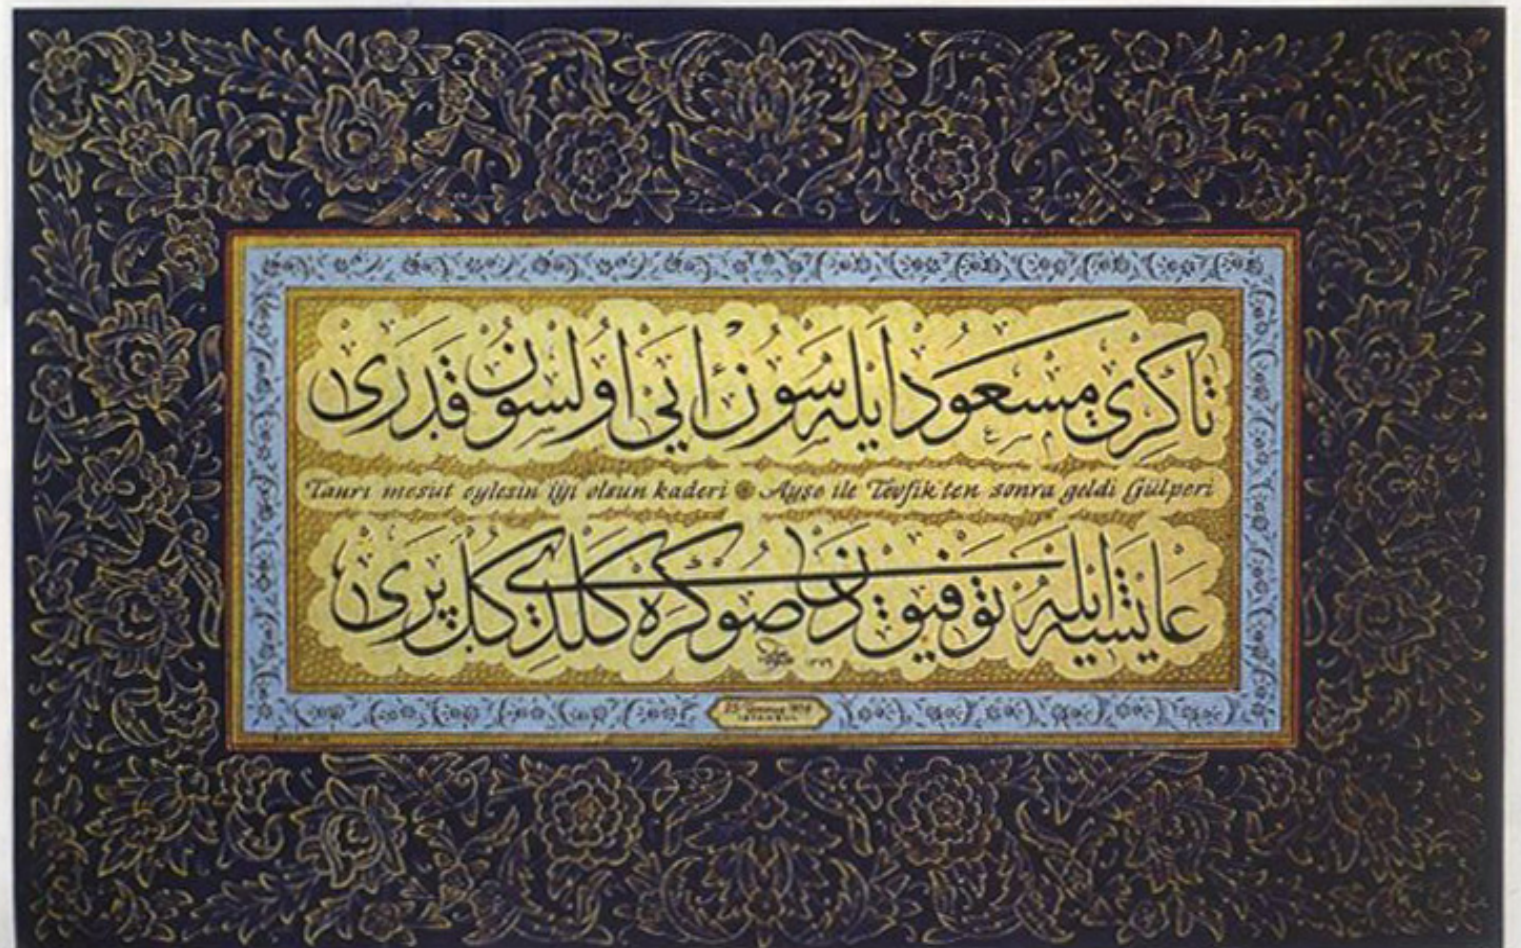 تاڭری مسعود ایله سون ایی اولسون قدری
Tanrı mesut eylesin iyi olsun kaderi ❋ Ayşe ile Tevfik'ten sonra geldi Gülperi
عایشه ایله توفیق دن صوڭره كلدی كل پری
١٣٧٩
İSTANBUL